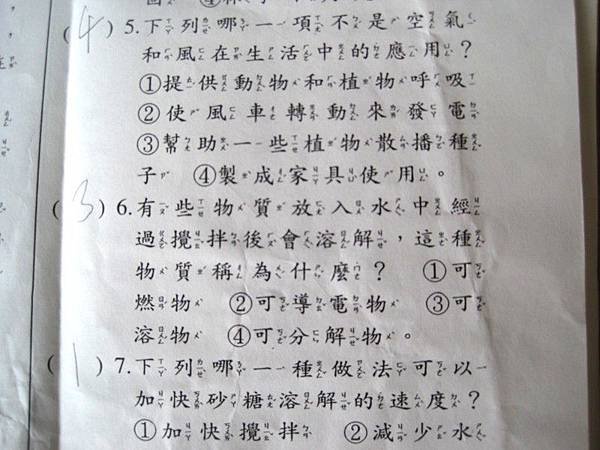 (4) 5.下列哪一項不是空氣
和風在生活中的應用？
①提供動物和植物呼吸
②使風車轉動來發電
③幫助一些植物散播種
子 ④製成家具使用。
(3) 6.有些物質放入水中經
過攪拌後會溶解，這種
物質稱為什麼？ ①可
燃物 ②可導電物 ③可
溶物 ④可分解物。
(1) 7.下列哪一種做法可以
加快砂糖溶解的速度？
①加快攪拌 ②減少水